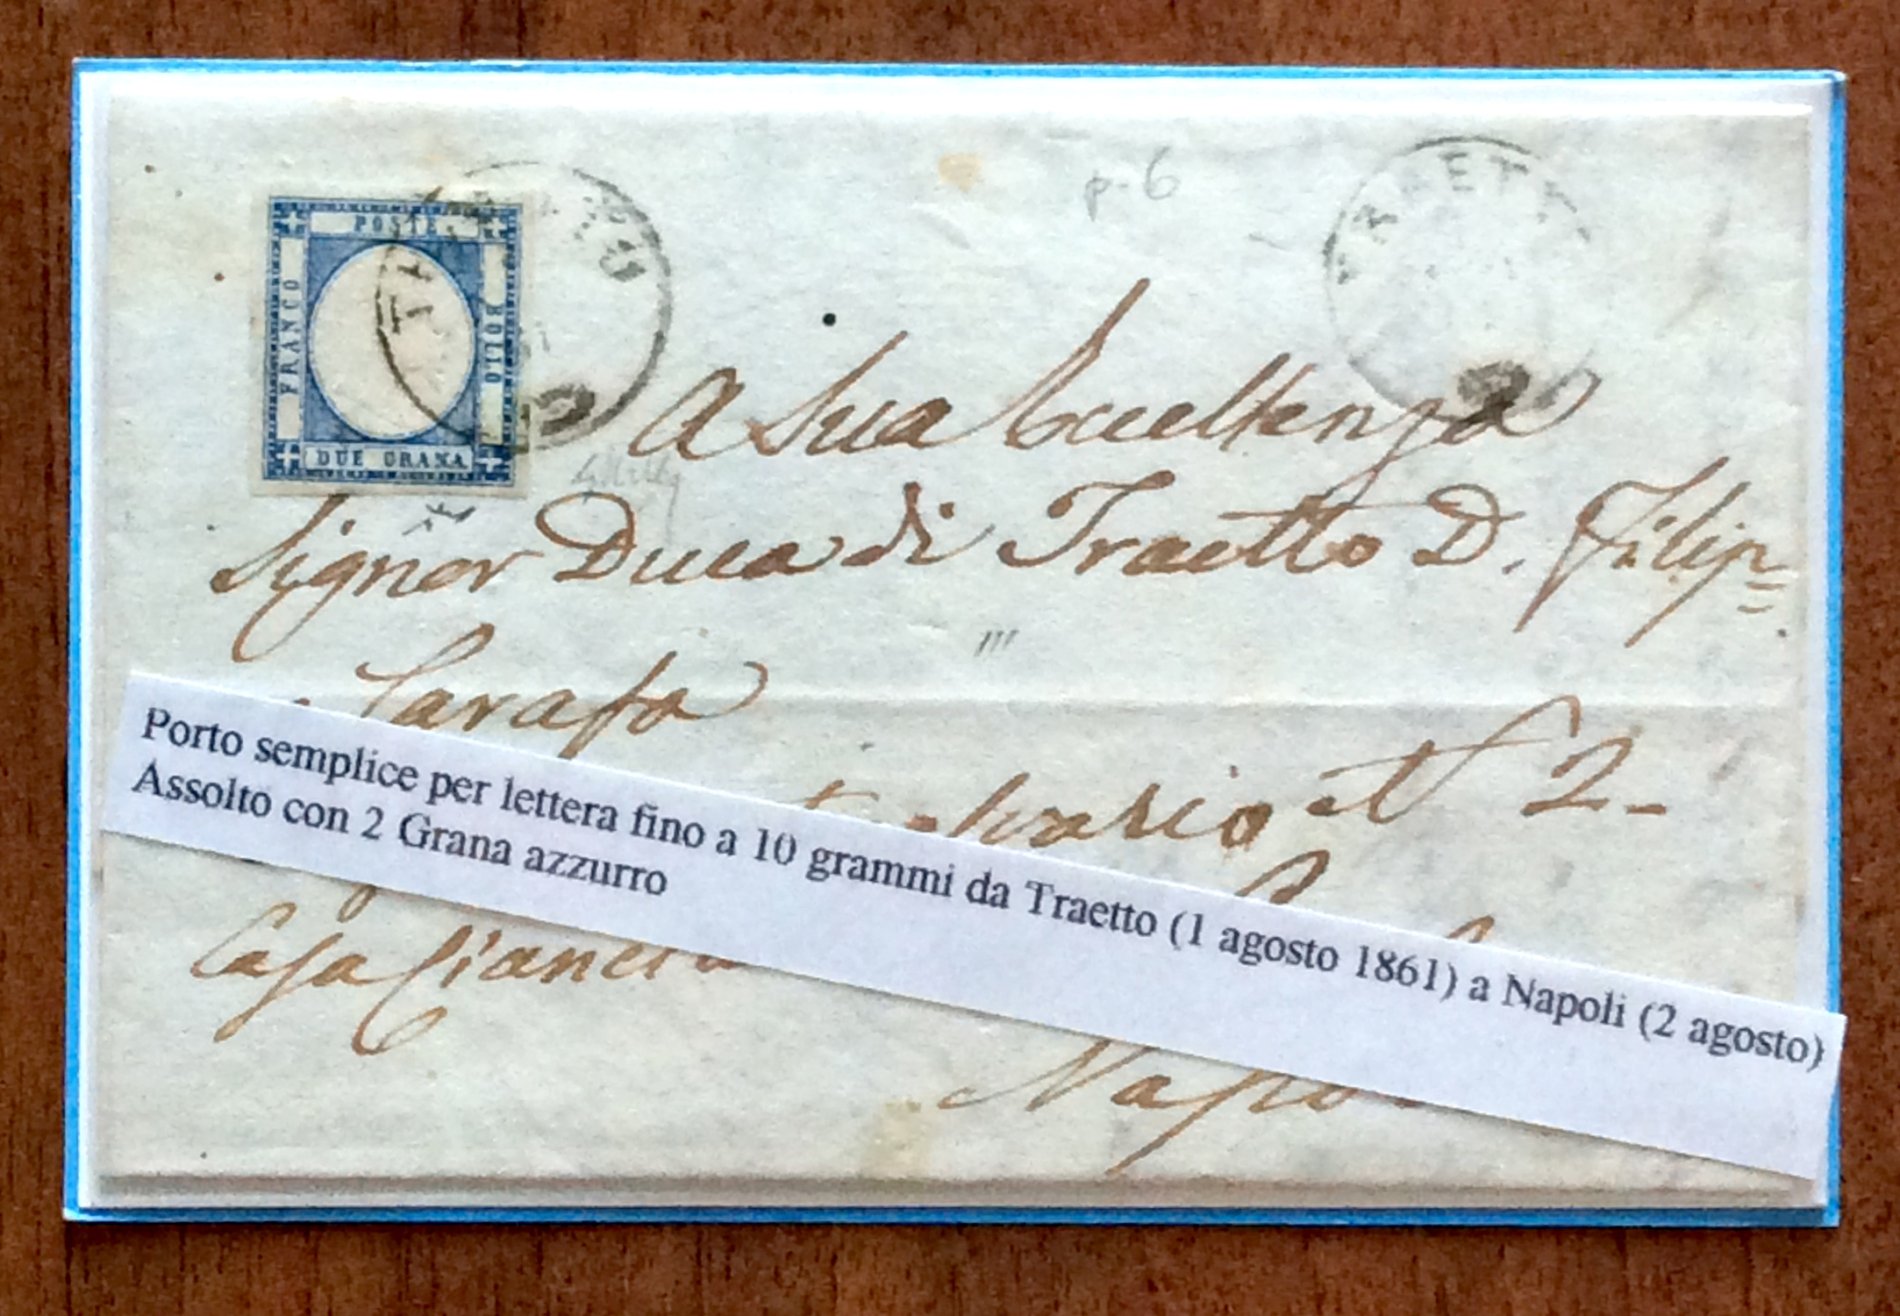 POSTE
FRANCO
BOLLO
DUE GRANA
TRAETTO
p. 6
A Sua Eccellenza
Signor Duca di Traetto D. Filip=
Carafa
N 2-
Porto semplice per lettera fino a 10 grammi da Traetto (1 agosto 1861) a Napoli (2 agosto)
Assolto con 2 Grana azzurro
Casa
Napo